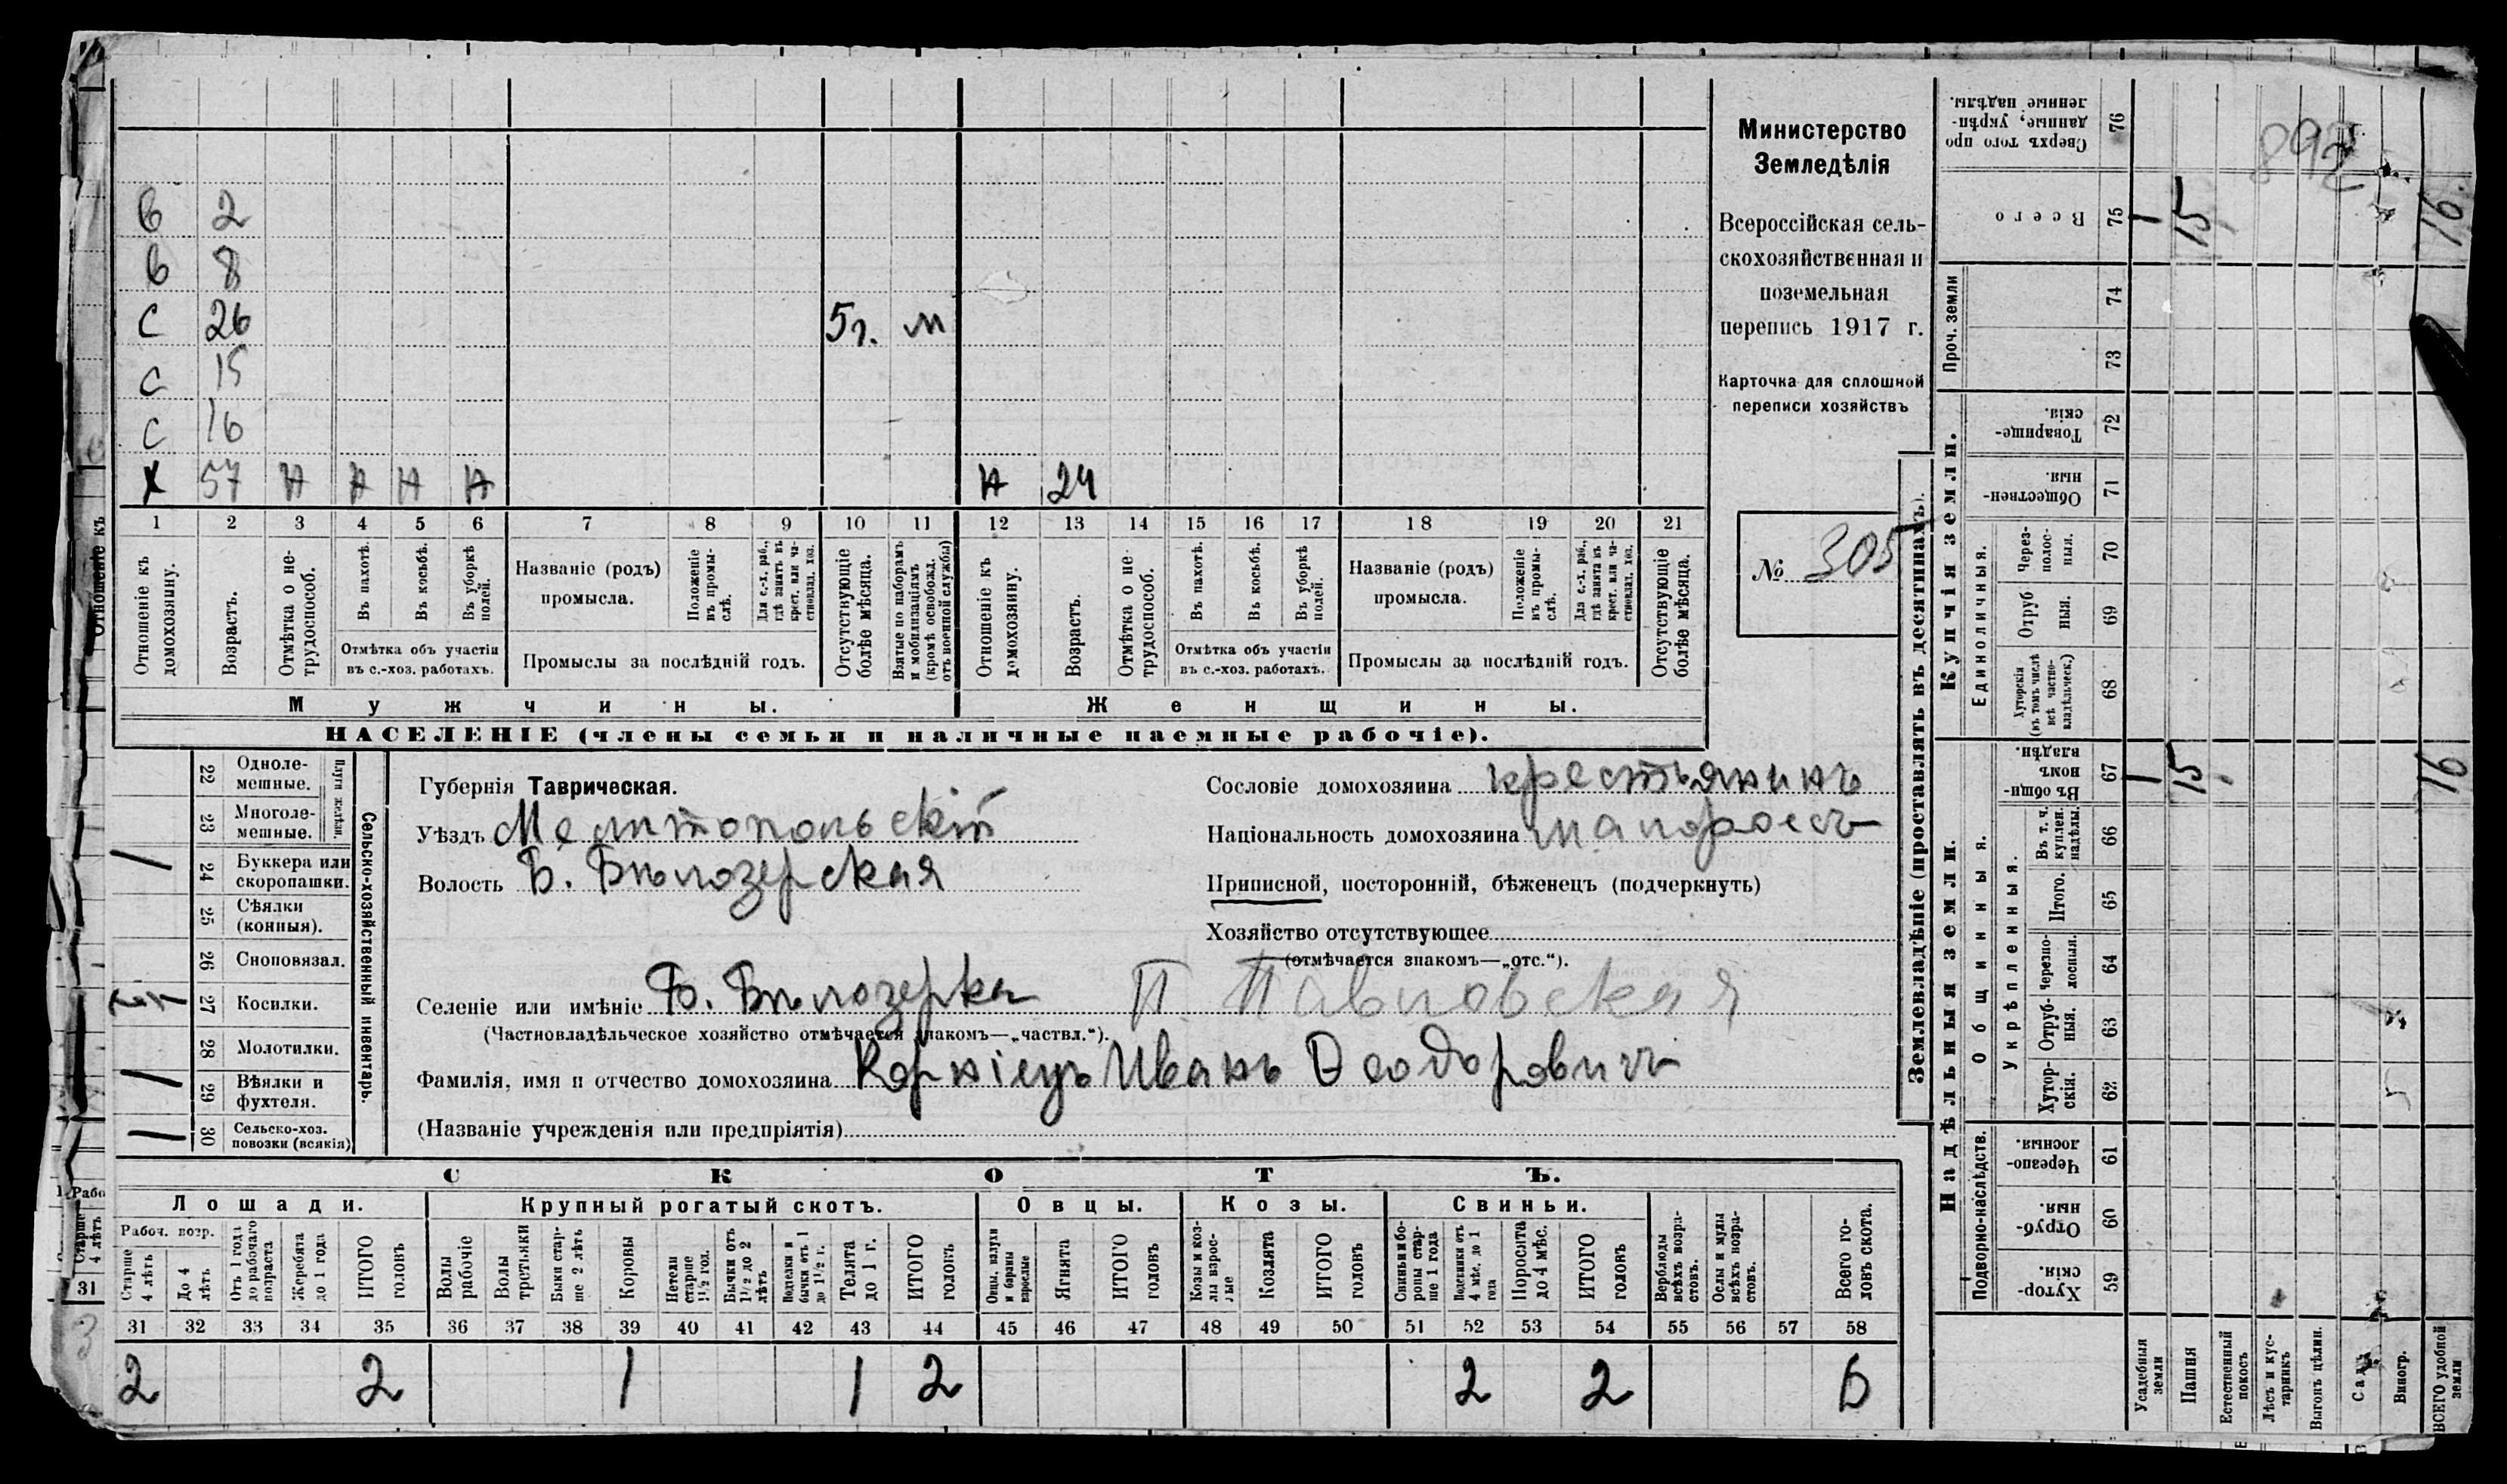 в 2
в 8
с 26 5г. м
с 15
с 16
х 57 н н н н н 24
1 2 3 4 5 6 7 8 9 10 11 12 13 14 15 16 17 18 19 20 21
Отношеніе къ домохозяину.
Возрастъ.
Отмѣтка о не-трудоспособ.
Въ пахотѣ.
Въ косьбѣ.
Въ уборкѣ полей.
Отмѣтка объ участіи
въ с.-хоз. работахъ.
Названіе (родъ)
промысла.
Положеніе въ промы-слѣ.
Для с.-х. раб., гдѣ занятъ въ крест. или ча-стновлад. хоз.
Промыслы за послѣдній годъ.
Отсутствующіе болѣе мѣсяца.
Взятые по наборамъ и мобилизаціямъ (кромѣ освобожд. отъ военной службы)
Отношеніе къ домохозяину.
Возрастъ.
Отмѣтка о не трудоспособ.
Въ пахотѣ.
Въ косьбѣ.
Въ уборкѣ полей.
Отмѣтка объ участіи
въ с.-хоз. работахъ.
Названіе (родъ)
промысла.
Положеніе въ промы-слѣ.
Для с.-х. раб., гдѣ занята въ крест. или ча-стновлад. хоз.
Промыслы за послѣдній годъ.
Отсутствующіе болѣе мѣсяца.
Мужчины. Женщины.
НАСЕЛЕНІЕ (члены семьи и наличные наемные рабочіе).
Министерство
Земледѣлія
Всероссійская сель-
скохозяйственная и
поземельная
перепись 1917 г.
Карточка для сплошной
переписи хозяйствъ
№ 305
22 Однолемешные.
23 Многолемешные.
Плуги желѣзн.
24 Буккера или скоропашки.
25 Сѣялки (конныя).
26 Сноповязал.
27 Косилки.
28 Молотилки.
29 Вѣялки и фухтеля.
30 Сельско-хоз. повозки (всякія)
Сельско-хозяйственный инвентарь.
Губернія Таврическая.
Уѣздъ Мелитопольскій
Волость Б. Бѣлозерская
Сословіе домохозяина крестьянинъ
Національность домохозяина малороссъ
Приписной, посторонній, бѣженецъ (подчеркнуть)
Хозяйство отсутствующее
(отмѣчается знакомъ—„отс.“).
Селеніе или имѣніе Б. Бѣлозерка П. Павловская
(Частновладѣльческое хозяйство отмѣчается знакомъ—„частвл.“).
Фамилія, имя и отчество домохозяина Корніецъ Иванъ Ѳеодоровичъ
(Названіе учрежденія или предпріятія)
СКОТЪ.
Лошади. Крупный рогатый скотъ. Овцы. Козы. Свиньи.
Рабоч. возр.
Старше 4 лѣтъ
До 4 лѣтъ
Отъ 1 года до рабочаго возраста
Жеребята до 1 года
ИТОГО головъ
Волы рабочіе
Волы третьяки
Быки стар-ше 2 лѣтъ
Коровы
Нетели старше 1½ год.
Бычки отъ 1½ до 2 лѣтъ
Подтелки и бычки отъ 1 до 1½ г.
Телята до 1 г.
ИТОГО головъ
Овцы, валухи и бараны взрослые
Ягнята
ИТОГО головъ
Козы и коз-лы взрос-лые
Козлята
ИТОГО головъ
Свиньи и бо-ровы стар-ше 1 года
Подсвинки отъ 4 мѣс. до 1 года
Поросята до 4 мѣс.
ИТОГО головъ
Верблюды всѣхъ возра-стовъ.
Ослы и мулы всѣхъ возра-стовъ.
Всего го-ловъ скота.
31 32 33 34 35 36 37 38 39 40 41 42 43 44 45 46 47 48 49 50 51 52 53 54 55 56 57 58
2 2 1 1 2 2 2 6
Отношеніе къ
Старше 4 лѣтъ
31
3
Землевладѣніе (проставлять въ десятинахъ).
Надѣльныя земли. Купчія земли. Проч. земли
Подворно-наслѣдств.
Общинныя.
Укрѣпленныя.
Единоличныя.
Сверхъ того про данные, укрѣп-ленные надѣлы. 76
Всего 75 1 15 16.
74
73
Товарище-скія. 72
Обществен-ныя 71
Через-полос-ныя. 70
Отруб ныя. 69
Хуторскія (въ томъ числѣ всѣ частно-владѣльческ.) 68
Въ общи-номъ владѣн. 67 1 15 16
Въ т. ч. куплен. надѣлы. 66
Итого. 65
Черезпо-лосныя. 64
Отруб-ныя. 63
Хутор-скія. 62
Черезпо-лосныя. 61
Отруб-ныя. 60
Хутор-скія. 59
892
Усадебныя земли
Пашня
Естественный покосъ
Лѣсъ и кус-тарникъ
Выгонъ цѣлин.
Сады
Виногр.
ВСЕГО удобной земли